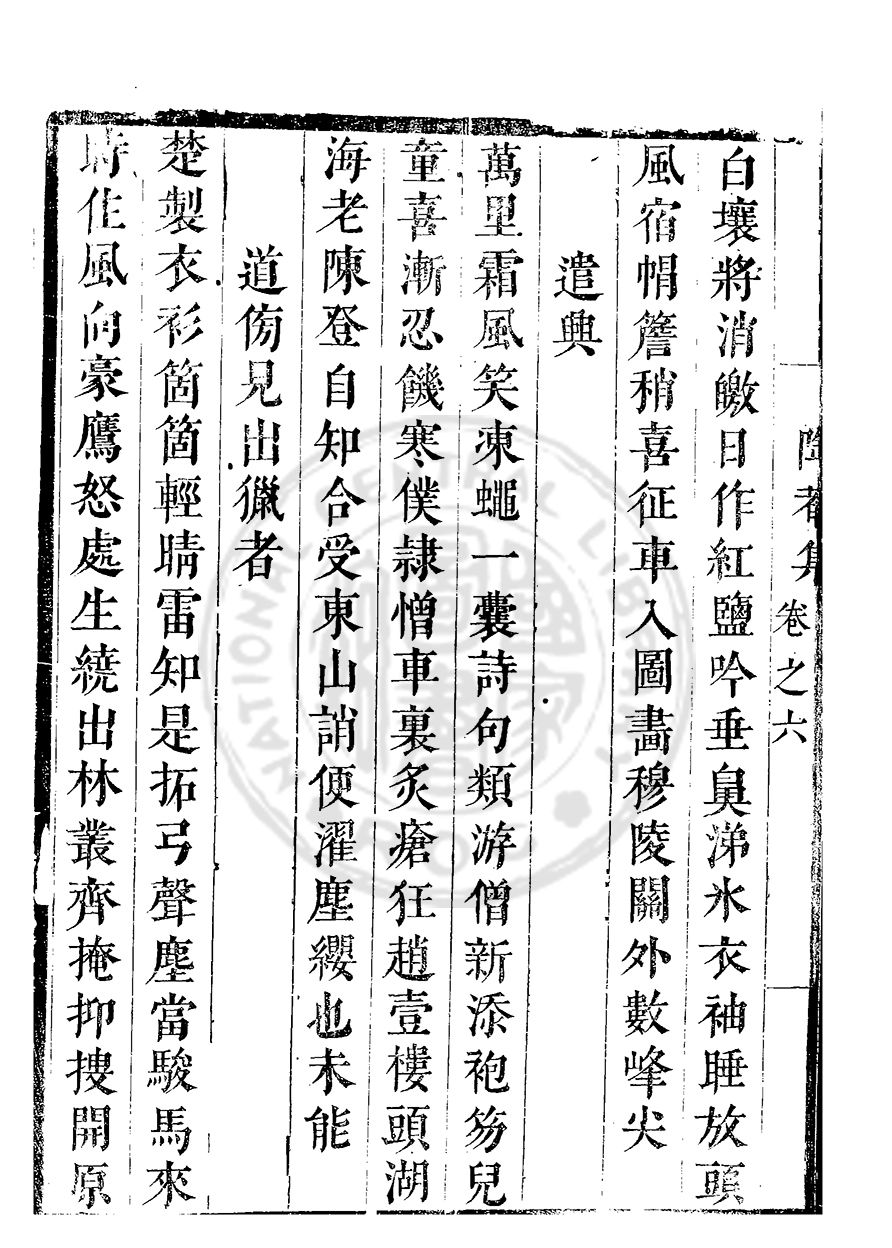 集 卷之六
白壤將消皦日作紅鹽吟垂臭涕氷衣袖睡放頭
風宿帽簷稍喜征車入圖畵穆陵關外數峰尖
遣興
萬里霜風笑凍蠅一囊詩句類游僧新添袍笏兒
童喜漸忍饑寒僕隷憎車裏炙瘡狂趙壹樓頭湖
海老陳登自知合受東山誚便濯塵纓也未能
道傍見出獵者
楚製衣衫箇箇輕晴雷知是拓弓聲塵當駿馬來
時住風向豪鷹怒處生繞出林叢齊掩抑搜開原
NATIONAL CENTRAL LIBRARY